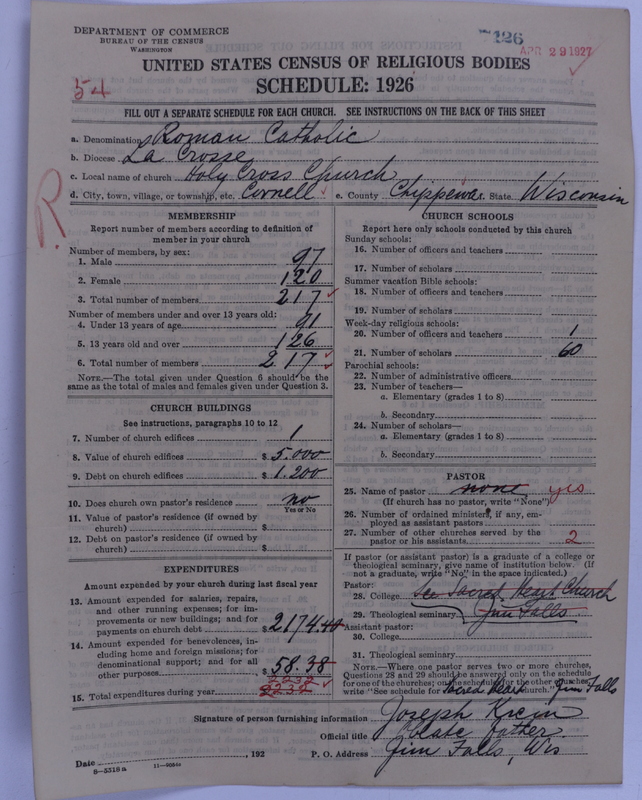 DEPARTMENT OF COMMERCE
BUREAU OF THE CENSUS
WASHINGTON
126
APR 29 1927
UNITED STATES CENSUS OF RELIGIOUS BODIES
54
SCHEDULE: 1926
FILL OUT A SEPARATE SCHEDULE FOR EACH CHURCH. SEE INSTRUCTIONS ON THE BACK OF THIS SHEET
a. Denomination Roman Catholic
b. Diocese La Crosse
c. Local name of church Holy Cross Church
d. City, town, village, or township, etc. Cornell e. County Chippewa f. State Wisconsin
R.
MEMBERSHIP
Report number of members according to definition of
member in your church
Number of members, by sex:
1. Male 97
2. Female 120
3. Total number of members 217
Number of members under and over 13 years old:
4. Under 13 years of age 91
5. 13 years old and over 126
6. Total number of members 217
NOTE.—The total given under Question 6 should be the
same as the total of males and females given under Question 3.
CHURCH BUILDINGS
See instructions, paragraphs 10 to 12
7. Number of church edifices 1
8. Value of church edifices $ 5.000
9. Debt on church edifices $ 1.200
10. Does church own pastor's residence no
Yes or No
11. Value of pastor's residence (if owned by
church) $
12. Debt on pastor's residence (if owned by
church) $
EXPENDITURES
Amount expended by your church during last fiscal year
13. Amount expended for salaries, repairs,
and other running expenses; for im-
provements or new buildings; and for
payments on church debt $ 2174.40
14. Amount expended for benevolences, in-
cluding home and foreign missions; for
denominational support; and for all
other purposes $ 58.38
2232
15. Total expenditures during year 2232
CHURCH SCHOOLS
Report here only schools conducted by this church
Sunday schools:
16. Number of officers and teachers
17. Number of scholars
Summer vacation Bible schools:
18. Number of officers and teachers
19. Number of scholars
Week-day religious schools:
20. Number of officers and teachers 1
21. Number of scholars 60
Parochial schools:
22. Number of administrative officers
23. Number of teachers—
a. Elementary (grades 1 to 8)
b. Secondary
24. Number of scholars—
a. Elementary (grades 1 to 8)
b. Secondary
PASTOR
25. Name of pastor none yes
(If church has no pastor, write "None")
26. Number of ordained ministers, if any, em-
ployed as assistant pastors
27. Number of other churches served by the
pastor or his assistants 2
If pastor (or assistant pastor) is a graduate of a college or
theological seminary, give name of institution below. (If
not a graduate, write "No" in the space indicated.)
Pastor:
28. College See Sacred Heart Church
29. Theological seminary Jim Falls
Assistant pastor:
30. College
31. Theological seminary
NOTE.—Where one pastor serves two or more churches,
Questions 28 and 29 should be answered only on the schedule
for one of the churches; on the schedules for the other churches,
write "See schedule for Sacred Heart church." Jim Falls
Signature of person furnishing information Joseph Krein
Official title
Date , 192 P. O. Address Jim Falls, Wis
8-5318a 11-9064a